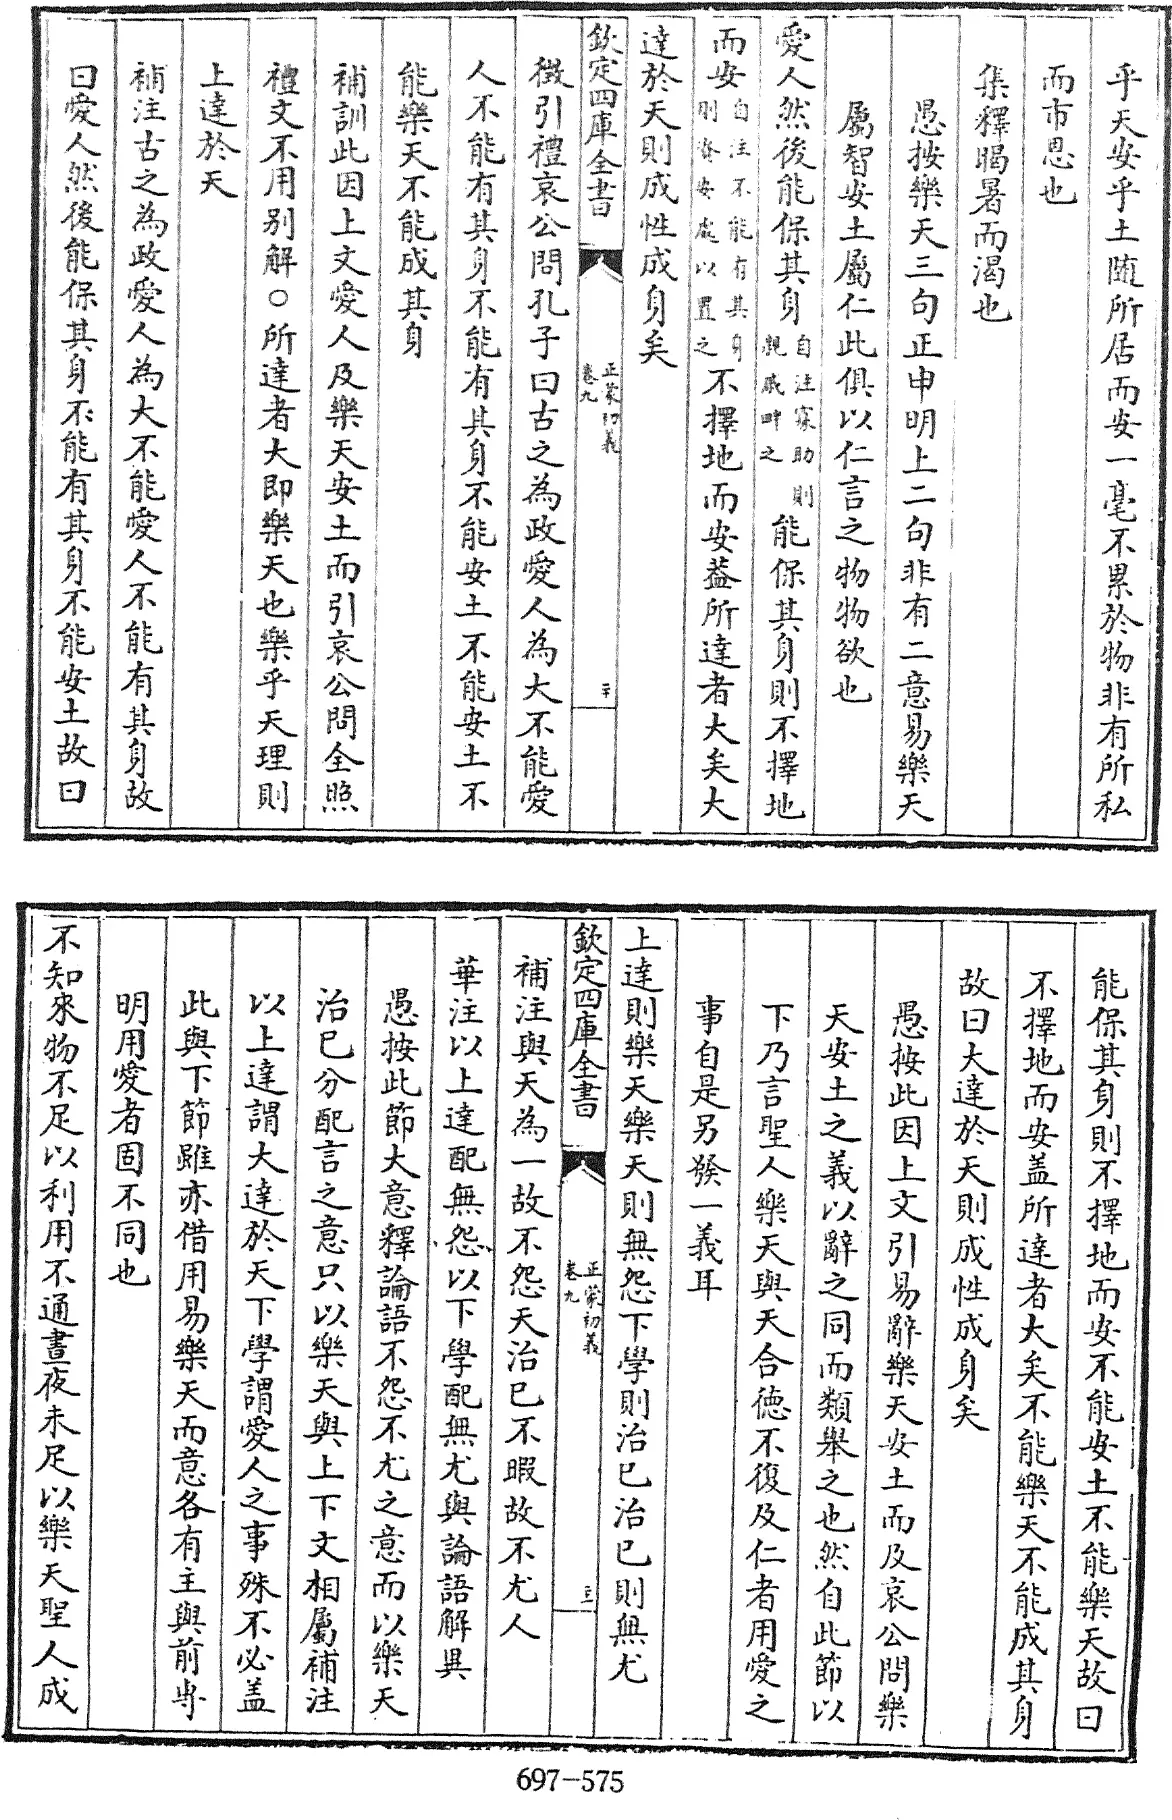 乎天安乎土随所居而安一毫不累於物非有所私
而市恩也
集釋暍暑而渴也
愚按樂天三句正申明上二句非有二意易樂天
屬智安土屬仁此俱以仁言之物物欲也
愛人然後能保其身自注寡助則親戚畔之能保其身則不擇地
而安自注不能有其身則資安處以置之不擇地而安葢所達者大矣大
達於天則成性成身矣
欽定四庫全書
正蒙初義
卷九
二十
徴引禮哀公問孔子曰古之為政愛人為大不能愛
人不能有其身不能有其身不能安土不能安土不
能樂天不能成其身
補訓此因上文愛人及樂天安土而引哀公問全照
禮文不用别解○所達者大即樂天也樂乎天理則
上達於天
補注古之為政愛人為大不能愛人不能有其身故
曰愛人然後能保其身不能有其身不能安土故曰
能保其身則不擇地而安不能安土不能樂天故曰
不擇地而安盖所達者大矣不能樂天不能成其身
故曰大達於天則成性成身矣
愚按此因上文引易辭樂天安土而及哀公問樂
天安土之義以辭之同而類舉之也然自此節以
下乃言聖人樂天與天合德不復及仁者用愛之
事自是另發一義耳
上達則樂天樂天則無怨下學則治已治已則無尤
欽定四庫全書
正蒙初義
卷九
補注與天為一故不怨天治已不暇故不尤人
華注以上達配無怨以下學配無尤與論語解異
愚按此節大意釋論語不怨不尤之意而以樂天
治已分配言之意只以樂天與上下文相屬補注
以上達謂大達於天下學謂愛人之事殊不必盖
此與下節雖亦借用易樂天而意各有主與前専
明用愛者固不同也
不知來物不足以利用不通晝夜未足以樂天聖人成
697-575